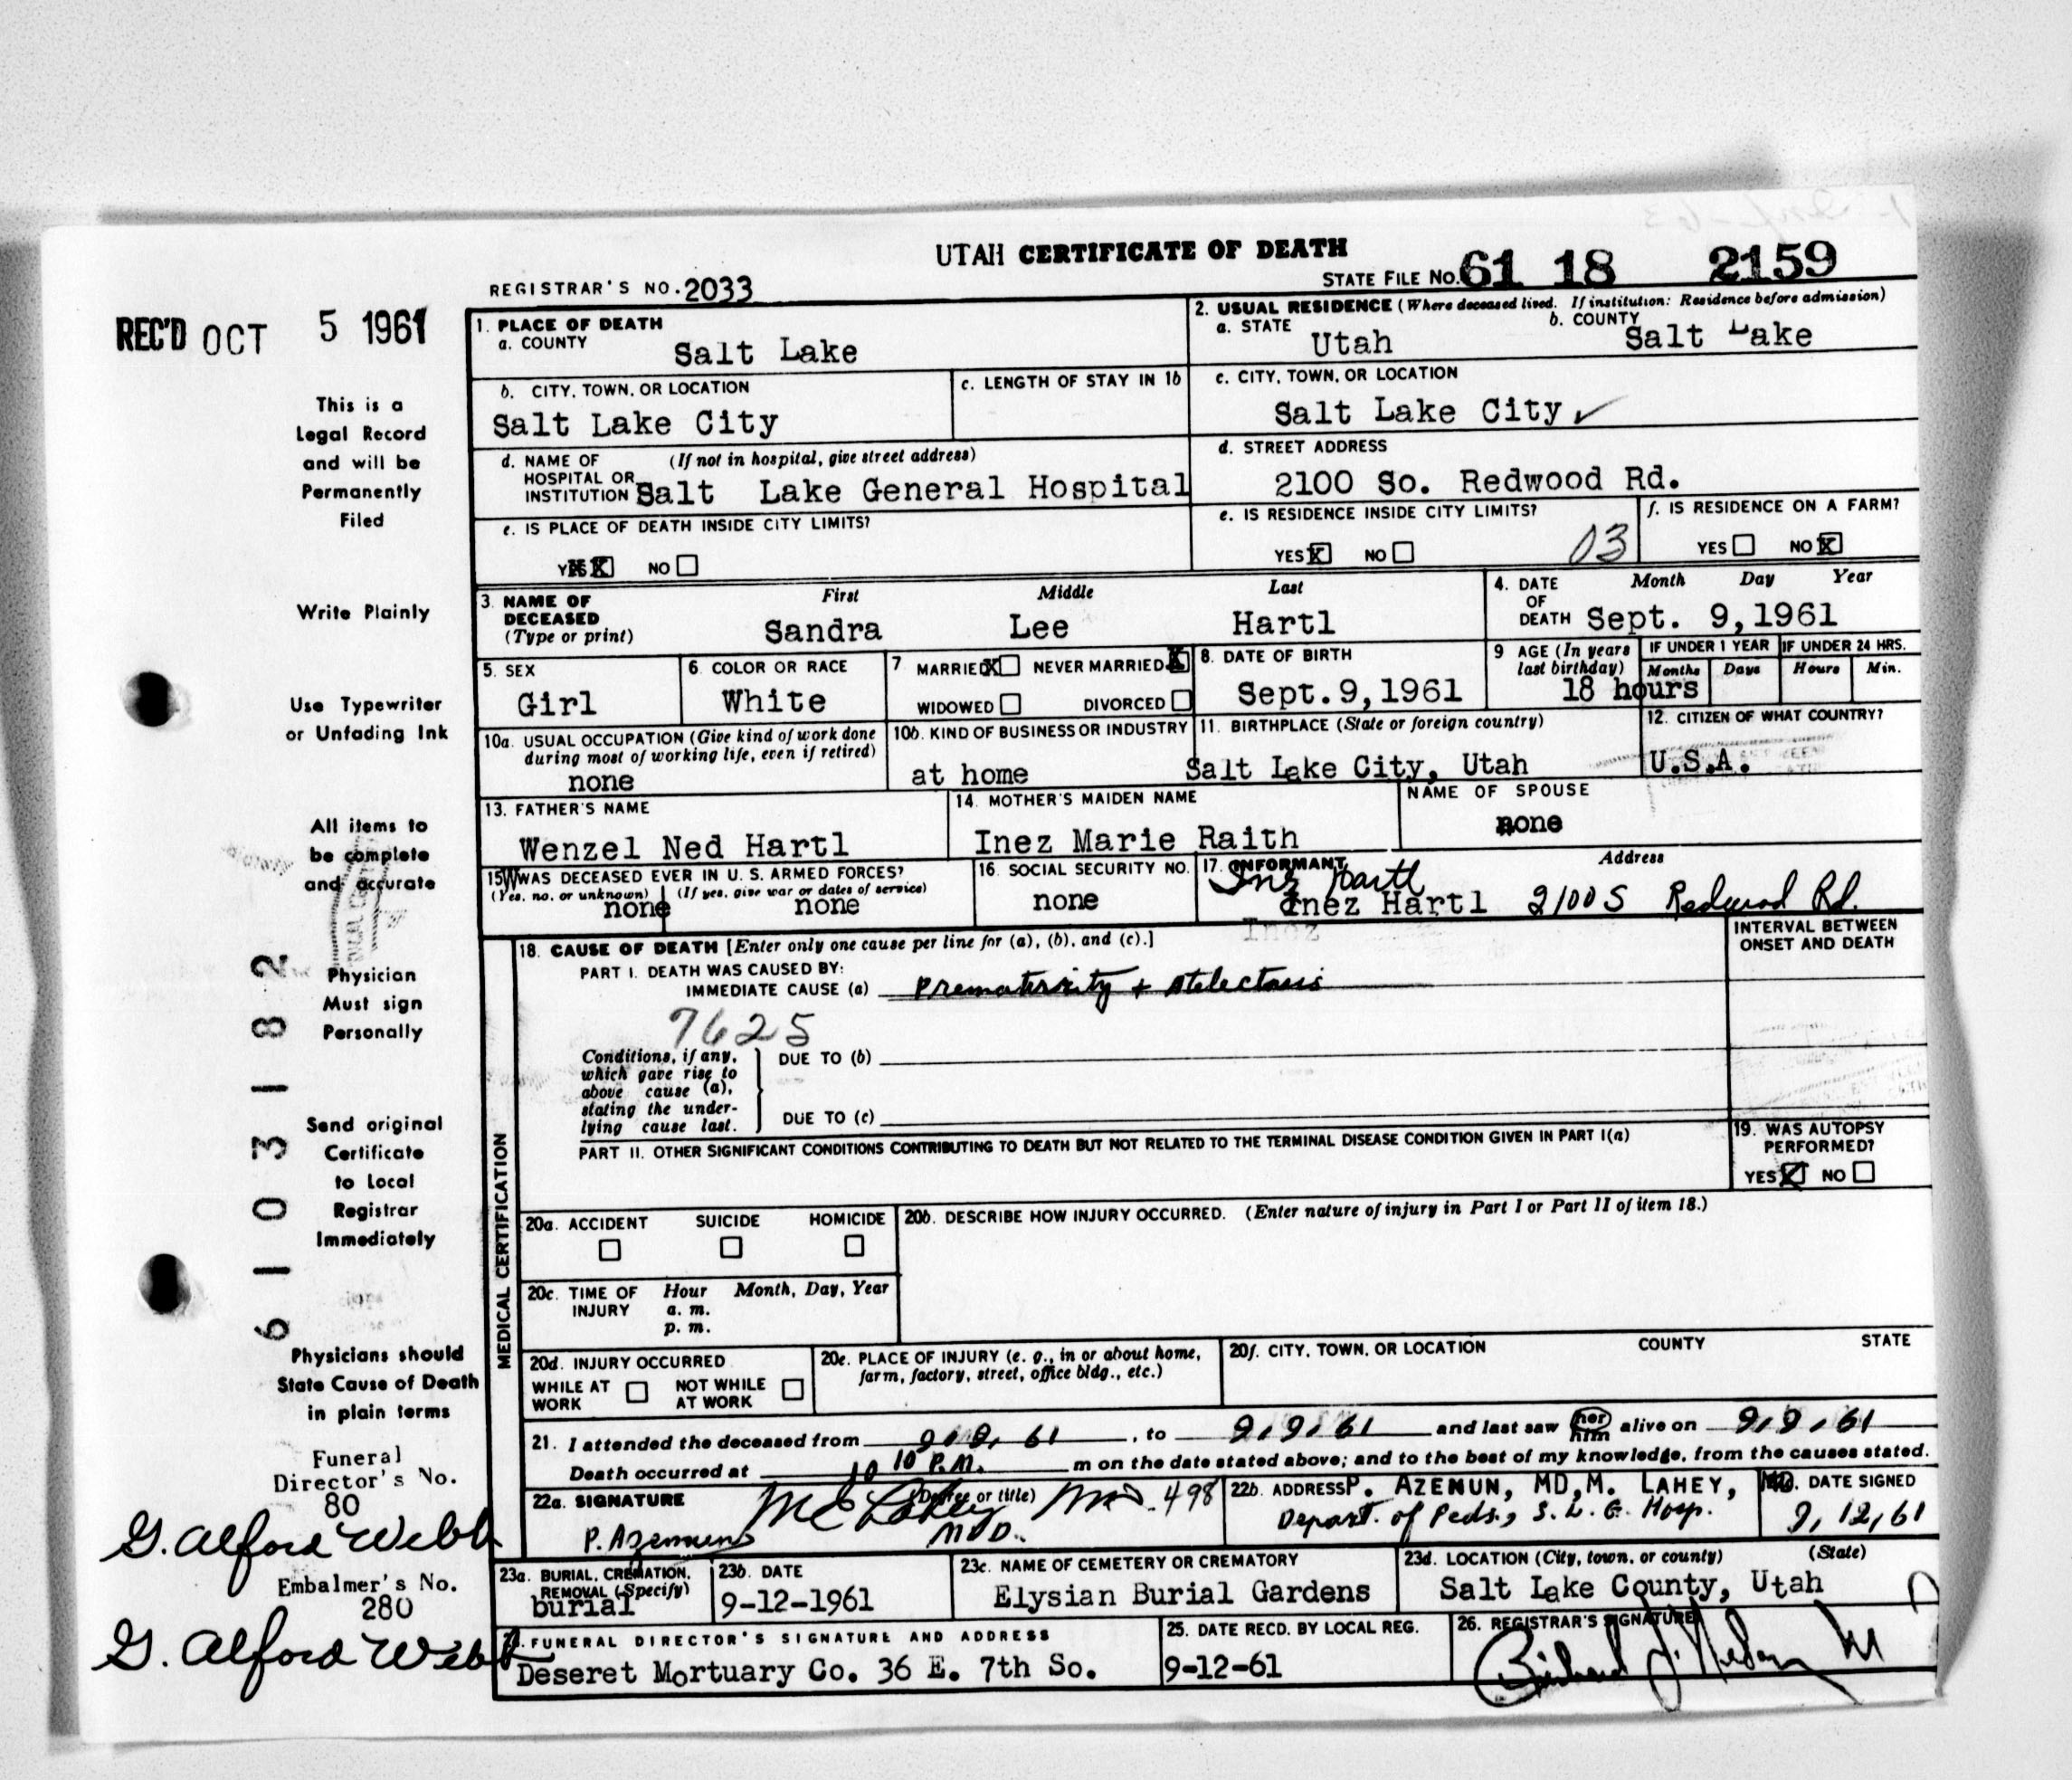 UTAH CERTIFICATE OF DEATH
STATE FILE NO. 61 18 2159
REGISTRAR'S NO. 2033
REC'D OCT 5 1961
This is a
Legal Record
and will be
Permanently
Filed
Write Plainly
Use Typewriter
or Unfading Ink
All items to
be complete
and accurate
Physician
Must sign
Personally
Send original
Certificate
to Local
Registrar
Immediately
Physicians should
State Cause of Death
in plain terms
Funeral
Director's No.
80
G. Alford Webb
Embalmer's No.
280
G. Alford Webb
61031182
1. PLACE OF DEATH
a. COUNTY
Salt Lake
2. USUAL RESIDENCE (Where deceased lived. If institution: Residence before admission)
a. STATE b. COUNTY
Utah Salt Lake
b. CITY, TOWN, OR LOCATION
Salt Lake City
c. LENGTH OF STAY IN 1b
c. CITY, TOWN, OR LOCATION
Salt Lake City ✓
d. NAME OF (If not in hospital, give street address)
HOSPITAL OR
INSTITUTION Salt Lake General Hospital
d. STREET ADDRESS
2100 So. Redwood Rd.
e. IS PLACE OF DEATH INSIDE CITY LIMITS?
YES X NO
e. IS RESIDENCE INSIDE CITY LIMITS?
YES X NO 03
f. IS RESIDENCE ON A FARM?
YES NO X
3. NAME OF DECEASED (Type or print)
First Middle Last
Sandra Lee Hartl
4. DATE OF DEATH Month Day Year
Sept. 9, 1961
5. SEX
Girl
6. COLOR OR RACE
White
7. MARRIED X NEVER MARRIED X
WIDOWED DIVORCED
8. DATE OF BIRTH
Sept. 9, 1961
9 AGE (In years last birthday) IF UNDER 1 YEAR IF UNDER 24 HRS.
Months Days Hours Min.
18 hours
10a. USUAL OCCUPATION (Give kind of work done
during most of working life, even if retired)
none
10b. KIND OF BUSINESS OR INDUSTRY
at home
11. BIRTHPLACE (State or foreign country)
Salt Lake City, Utah
12. CITIZEN OF WHAT COUNTRY?
U.S.A.
13. FATHER'S NAME
Wenzel Ned Hartl
14. MOTHER'S MAIDEN NAME
Inez Marie Raith
NAME OF SPOUSE
none
15. WAS DECEASED EVER IN U. S. ARMED FORCES?
(Yes, no, or unknown) (If yes, give war or dates of service)
none none
16. SOCIAL SECURITY NO.
none
17. INFORMANT Address
Inez Hartl
Inez Hartl 2100 S Redwood Rd.
Inez
18. CAUSE OF DEATH [Enter only one cause per line for (a), (b), and (c).]
INTERVAL BETWEEN
ONSET AND DEATH
PART I. DEATH WAS CAUSED BY:
IMMEDIATE CAUSE (a) Prematurity + Atelectasis
7625
Conditions, if any,
which gave rise to
above cause (a),
stating the under-
lying cause last.
DUE TO (b)
DUE TO (c)
PART II. OTHER SIGNIFICANT CONDITIONS CONTRIBUTING TO DEATH BUT NOT RELATED TO THE TERMINAL DISEASE CONDITION GIVEN IN PART I(a)
19. WAS AUTOPSY
PERFORMED?
YES X NO
MEDICAL CERTIFICATION
20a. ACCIDENT SUICIDE HOMICIDE
20b. DESCRIBE HOW INJURY OCCURRED. (Enter nature of injury in Part I or Part II of item 18.)
20c. TIME OF INJURY Hour Month, Day, Year
a. m.
p. m.
20d. INJURY OCCURRED
WHILE AT WORK NOT WHILE AT WORK
20e. PLACE OF INJURY (e. g., in or about home,
farm, factory, street, office bldg., etc.)
20f. CITY, TOWN, OR LOCATION COUNTY STATE
21. I attended the deceased from 9.9.61, to 9.9.61 and last saw her him alive on 9.9.61
Death occurred at 10 10 P.M. m on the date stated above; and to the best of my knowledge, from the causes stated.
22a. SIGNATURE (Degree or title)
MD. 498
P. Azemun M.D.
22b. ADDRESS P. AZEMUN, MD, M. LAHEY, MD.
Depart. of Peds., S. L. G. Hosp.
DATE SIGNED
9, 12, 61
23a. BURIAL, CREMATION,
REMOVAL (Specify)
burial
23b. DATE
9-12-1961
23c. NAME OF CEMETERY OR CREMATORY
Elysian Burial Gardens
23d. LOCATION (City, town, or county) (State)
Salt Lake County, Utah
FUNERAL DIRECTOR'S SIGNATURE AND ADDRESS
Deseret Mortuary Co. 36 E. 7th So.
25. DATE RECD. BY LOCAL REG.
9-12-61
26. REGISTRAR'S SIGNATURE